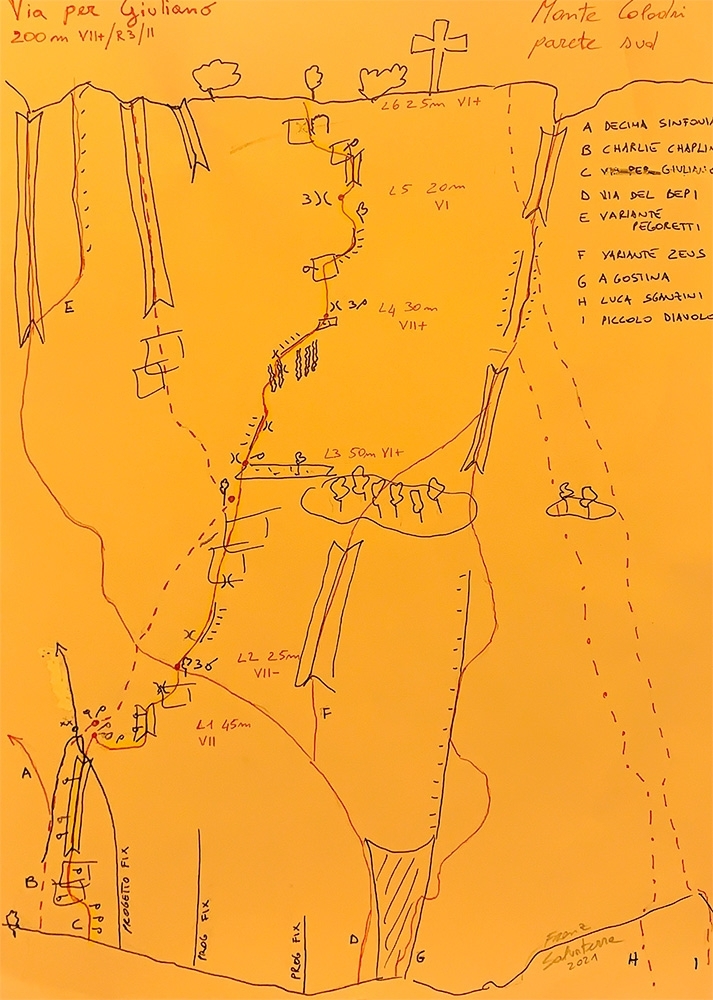 Via per Giuliano
200m VII+/R3/II
Monte Colodri
parete sud
L6 25m VI+
A DECIMA SINFONIA
B CHARLIE CHAPLIN
C VIA PER GIULIANO
D VIA DEL BEPI
E VARIANTE
PEGORETTI
F VARIANTE ZEUS
G AGOSTINA
H LUCA SGANZINI
I PICCOLO DIAVOLO
L5 20m
VI
E
L4 30m
VII+
L3 50m VI+
L2 25m
VII-
F
L1 45m
VII
A
B
C
PROGETTO FIX
PROG FIX
PROG FIX
D
G
Franz
Salvaterra
2021
H
I